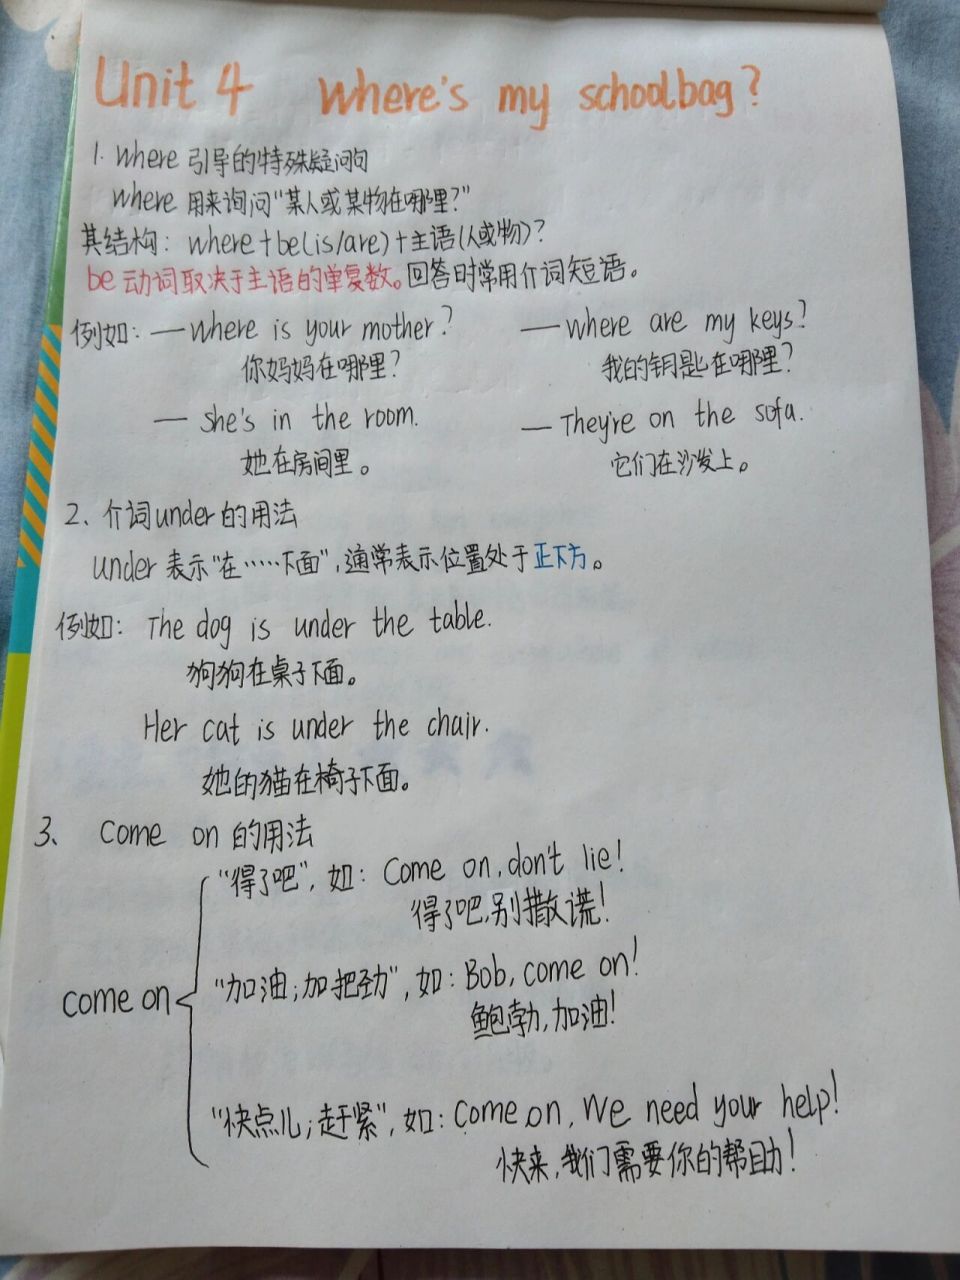 Unit 4 Where's my schoolbag?
1. Where 引导的特殊疑问句
where 用来询问"某人或某物在哪里?"
其结构: where+be(is/are)+主语(人或物)?
be 动词取决于主语的单复数。回答时常用介词短语。
例如: — Where is your mother? — Where are my keys?
你妈妈在哪里? 我的钥匙在哪里?
— She's in the room. — They're on the sofa.
她在房间里。 它们在沙发上。
2、介词under的用法
under 表示"在……下面",通常表示位置处于正下方。
例如: The dog is under the table.
狗狗在桌子下面。
Her cat is under the chair.
她的猫在椅子下面。
3、 Come on 的用法
"得了吧", 如: Come on, don't lie!
得了吧,别撒谎!
come on "加油;加把劲", 如: Bob, come on!
鲍勃,加油!
"快点儿;赶紧", 如: Come on, We need your help!
快来,我们需要你的帮助!